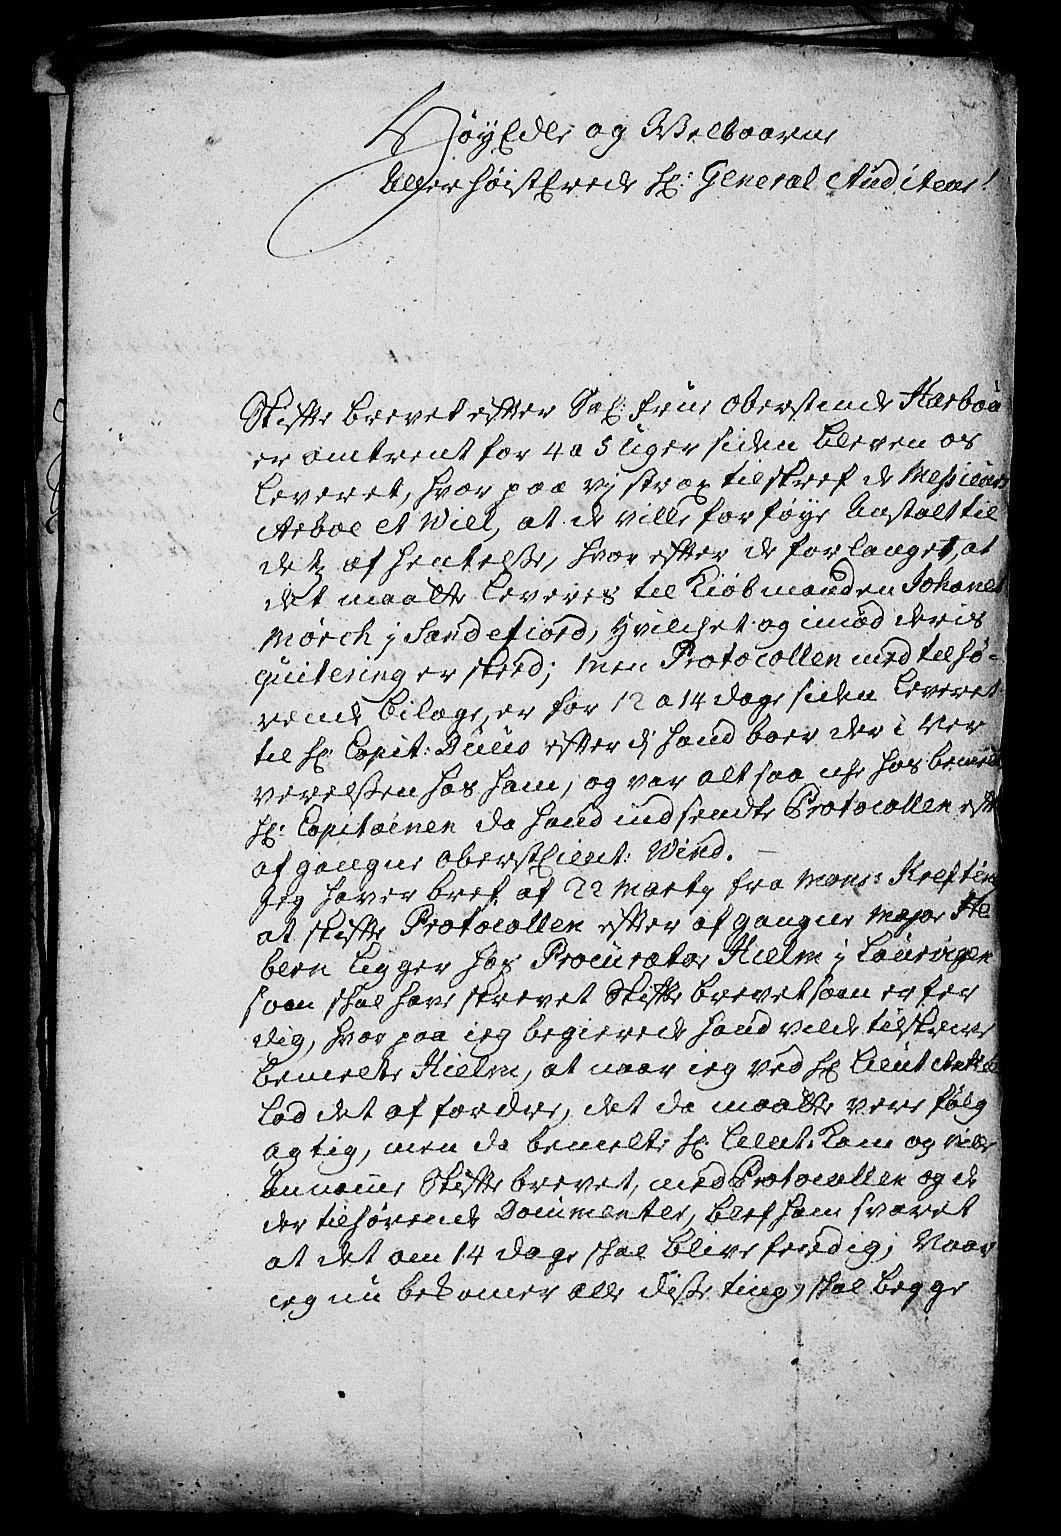 HøyEdle og Welbaarne
AllerhøistErede Hr: General Auditeur!
Skifte brevet efter Sal: frue Oberstinde Harboe
er omtrent for 4 a 5 Uger siden bleven os
leveret, hvor paa vj strax tilskref de Messieurs
Arboe et Will, at de ville forføye Anstalt til
detz afhentelsse, hvor efter de forlanget, at
det maatte leveres til Kiøbmanden Johannes
Mørch j Sandefiord, hvilchet og imod deris
quitering er skeed; men Protocollen med tilhø-
rende bilage, er for 12 a 14 dage siden leveret
til Hr: Capit: Duus efterdj hand boer der i Ver
verelssen hos ham, og var altsaa iche hos bemelte
Hr: Capitainen da hand indsendte Protocollen efter
afgangne Oberstlieut: Wind.
Jeg haver bref af 22 Marty fra Mons: Kreftin
at skifte Protocollen efter afgangne Major He
bern ligger hos Procurator Hielm j Laurvigen
som skal have skrevet Skifte brevet som er fer
dig, hvor paa ieg begierede hand vilde tilskrive
bemelte Hielm, at naar ieg ved Hr Lieut
lod det affordre, det da maatte vere følg
agtig, men da bemelte Hr: Lieut: Kom og ville
annamme Skifte brevet, med Protocollen og de
der tilhørende Documenter, blef ham svaret
at det om 14 dage skal blive ferdig; Naar
ieg nu bekomer alle disse ting, skal begge